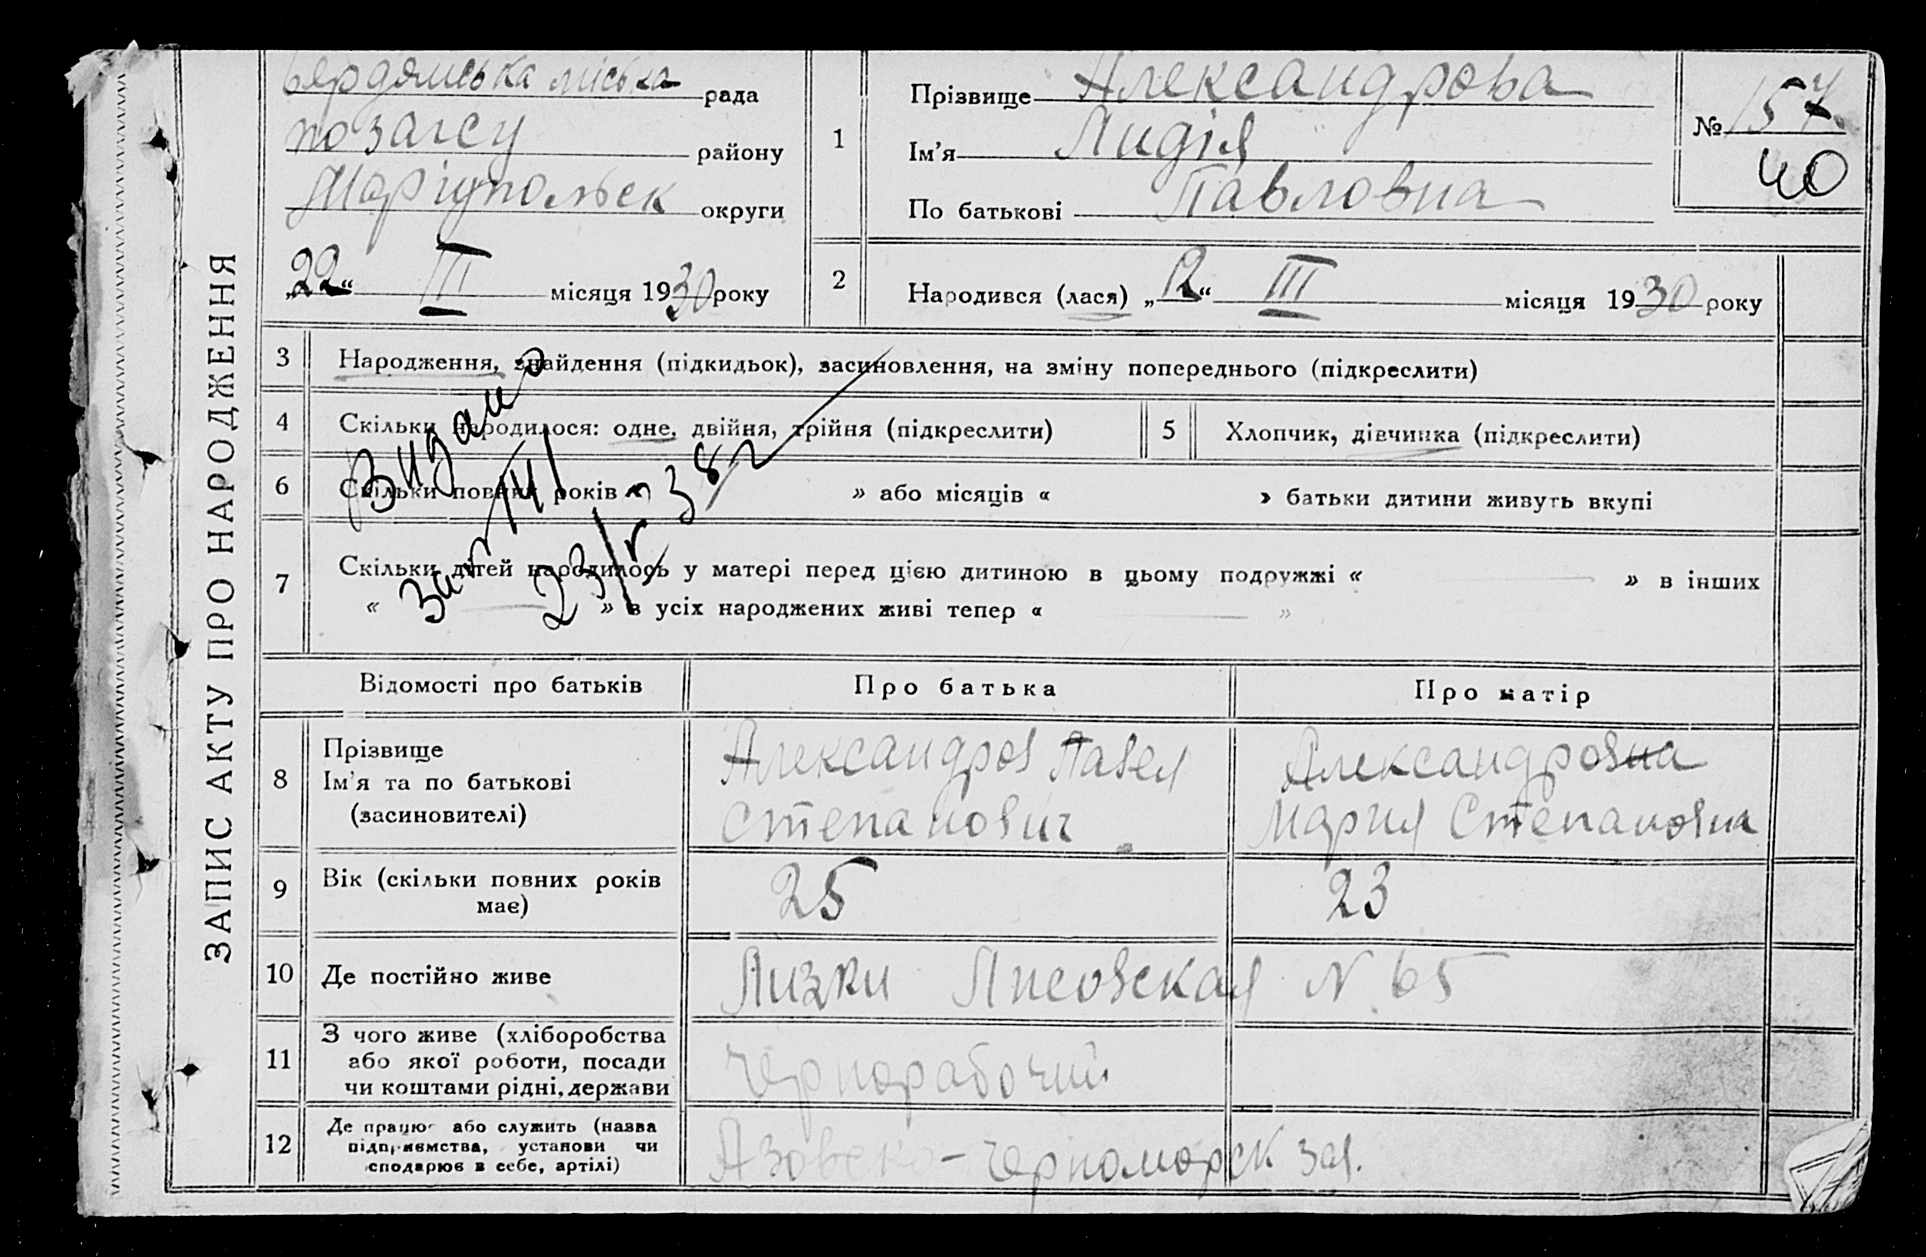 ЗАПИС АКТУ ПРО НАРОДЖЕННЯ
Бердянська міська рада
по загсу району
Маріупольск округи
„22“ III місяця 1930 року
1 Прізвище Александрова
Ім’я Лидія
По батькові Павловна
№ 157
40
2 Народився (лася) „12“ III місяця 1930 року
3 Народження, знайдення (підкидьок), засиновлення, на зміну попереднього (підкреслити)
4 Скільки народилося: одне, двійня, трійня (підкреслити)
5 Хлопчик, дівчинка (підкреслити)
6 Скільки повних років « » або місяців « » батьки дитини живуть вкупі
7 Скільки дітей народилось у матері перед цією дитиною в цьому подружжі « — » в інших
« — » в усіх народжених живі тепер « — »
Видано
23/V 38 г
Відомості про батьків Про батька Про матір
8 Прізвище
Ім’я та по батькові
(засиновителі)
Александров Павел
Степанович
Александровна
Мария Степановна
9 Вік (скільки повних років
має)
25 23
10 Де постійно живе
Лизки Лисовская N 65
11 З чого живе (хліборобства
або якої роботи, посади
чи коштами рідні, держави
Чернорабочий
12 Де працює або служить (назва
підприємства, установи чи
сподарює в себе, артілі)
Азовско-Черноморск зав.